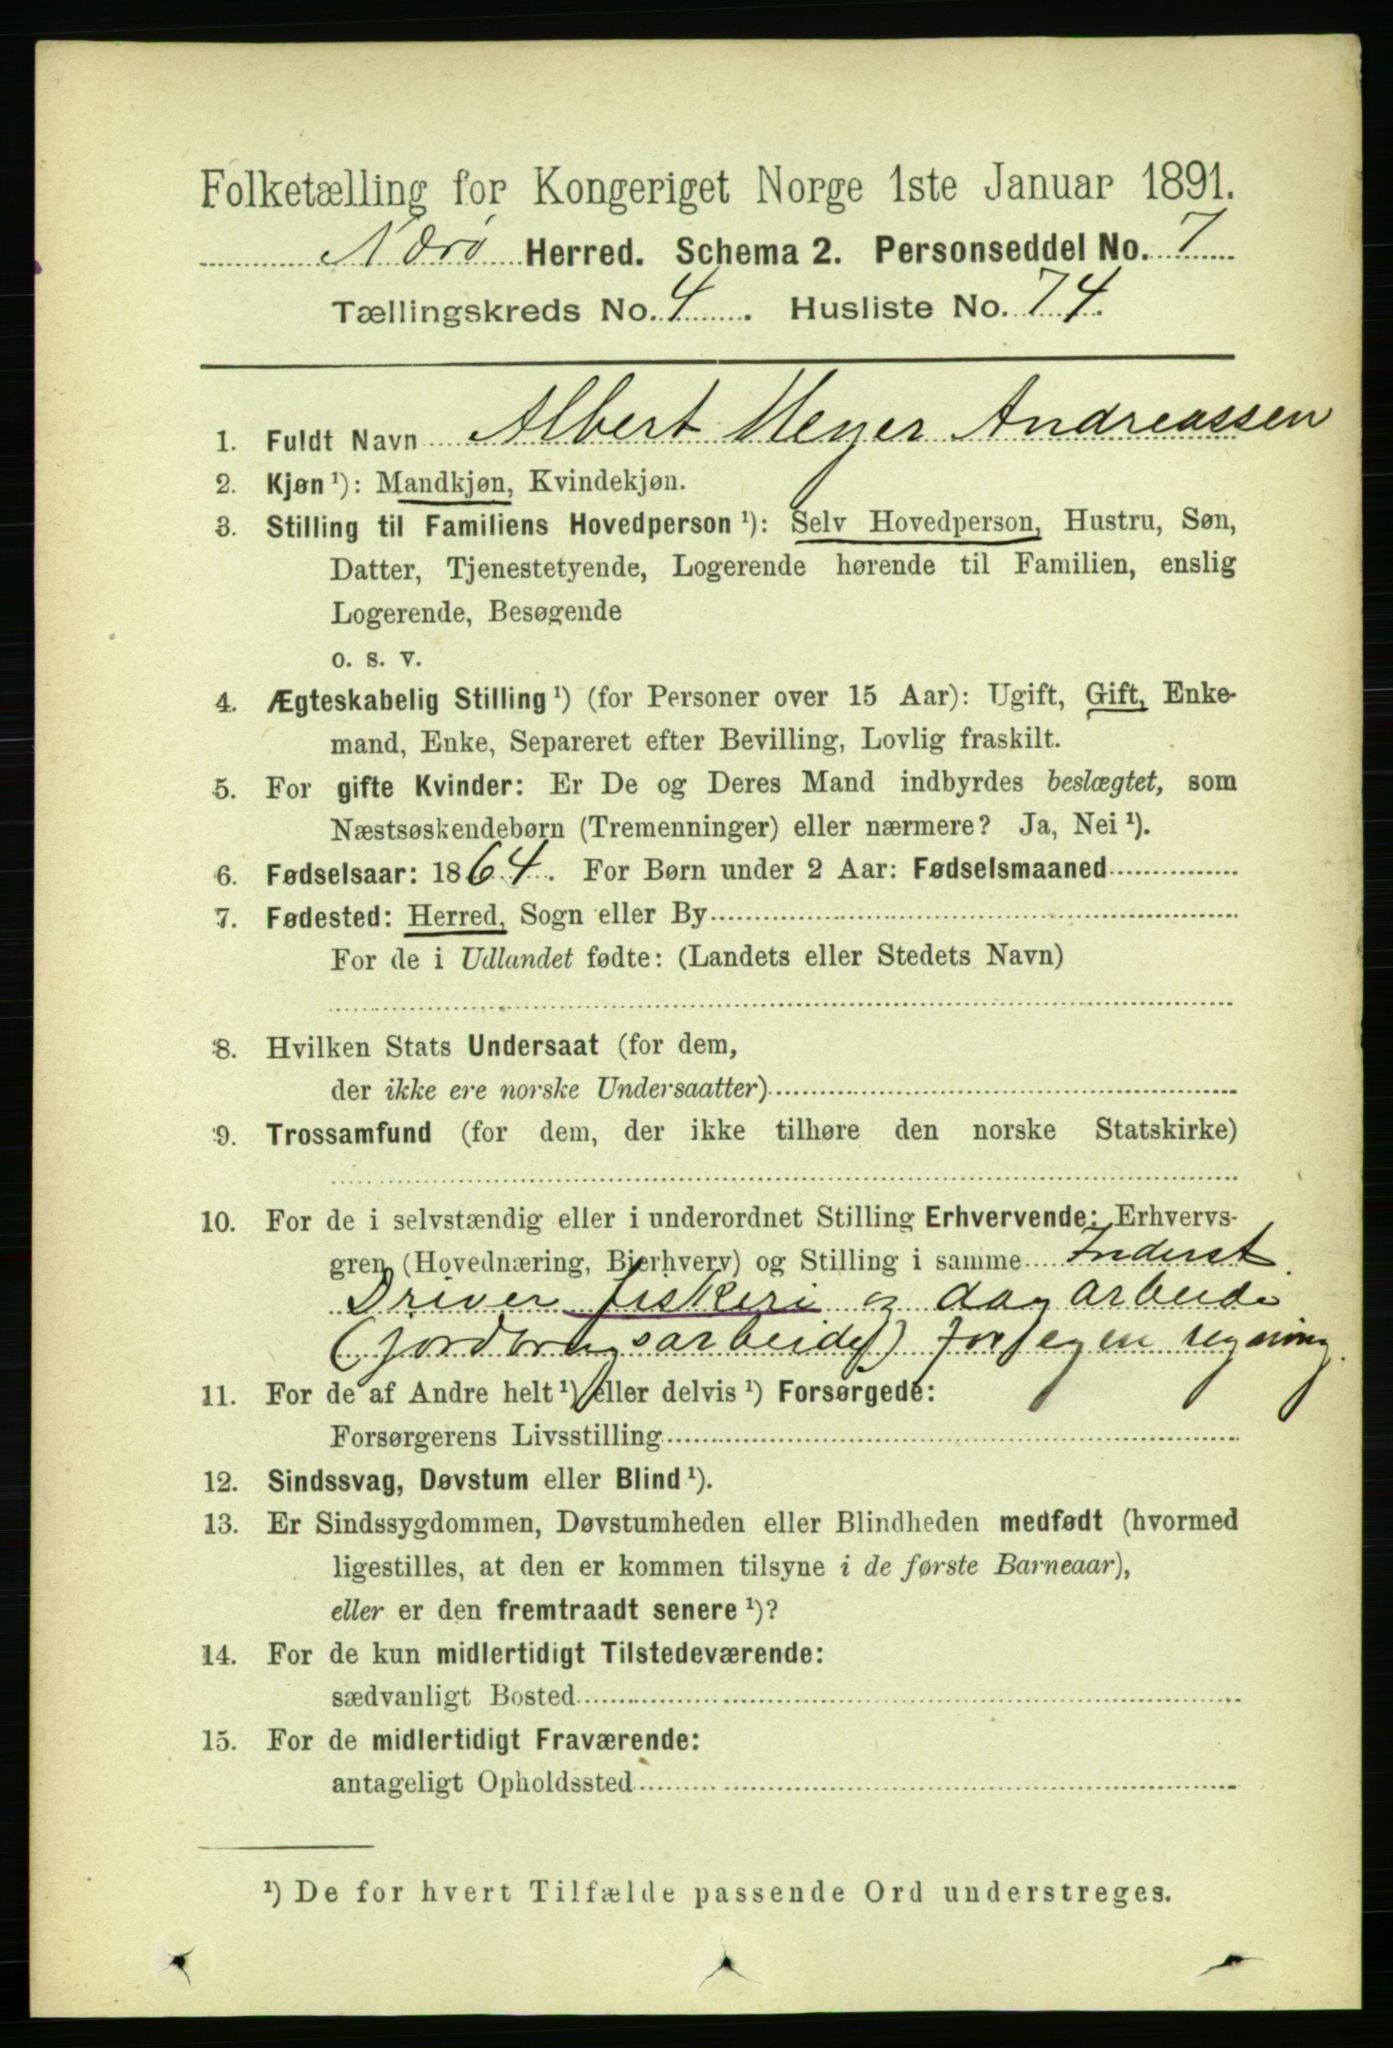 Folketælling for Kongeriget Norge 1ste Januar 1891.
Nærø Herred. Schema 2. Personseddel No. 7
Tællingskreds No. 4. Husliste No. 74.
1. Fuldt Navn Albert Meyer Andreassen
2. Kjøn ¹): Mandkjøn, Kvindekjøn.
3. Stilling til Familiens Hovedperson ¹): Selv Hovedperson, Hustru, Søn,
Datter, Tjenestetyende, Logerende hørende til Familien, enslig
Logerende, Besøgende
o. s. v.
4. Ægteskabelig Stilling ¹) (for Personer over 15 Aar): Ugift, Gift, Enke-
mand, Enke, Separeret efter Bevilling, Lovlig fraskilt.
5. For gifte Kvinder: Er De og Deres Mand indbyrdes beslægtet, som
Næstsøskendebørn (Tremenninger) eller nærmere? Ja, Nei ¹).
6. Fødselsaar: 1864. For Børn under 2 Aar: Fødselsmaaned
7. Fødested: Herred, Sogn eller By
For de i Udlandet fødte: (Landets eller Stedets Navn)
8. Hvilken Stats Undersaat (for dem,
der ikke ere norske Undersaatter)
9. Trossamfund (for dem, der ikke tilhøre den norske Statskirke)
10. For de i selvstændig eller i underordnet Stilling Erhvervende: Erhvervs-
gren (Hovednæring, Bierhverv) og Stilling i samme Inderst.
Driver fiskeri og dagarbeide
(jordbrugsarbeide) for egen regning.
11. For de af Andre helt ¹) eller delvis ¹) Forsørgede:
Forsørgerens Livsstilling
12. Sindssvag, Døvstum eller Blind ¹).
13. Er Sindssygdommen, Døvstumheden eller Blindheden medfødt (hvormed
ligestilles, at den er kommen tilsyne i de første Barneaar),
eller er den fremtraadt senere ¹)?
14. For de kun midlertidigt Tilstedeværende:
sædvanligt Bosted
15. For de midlertidigt Fraværende:
antageligt Opholdssted
¹) De for hvert Tilfælde passende Ord understreges.